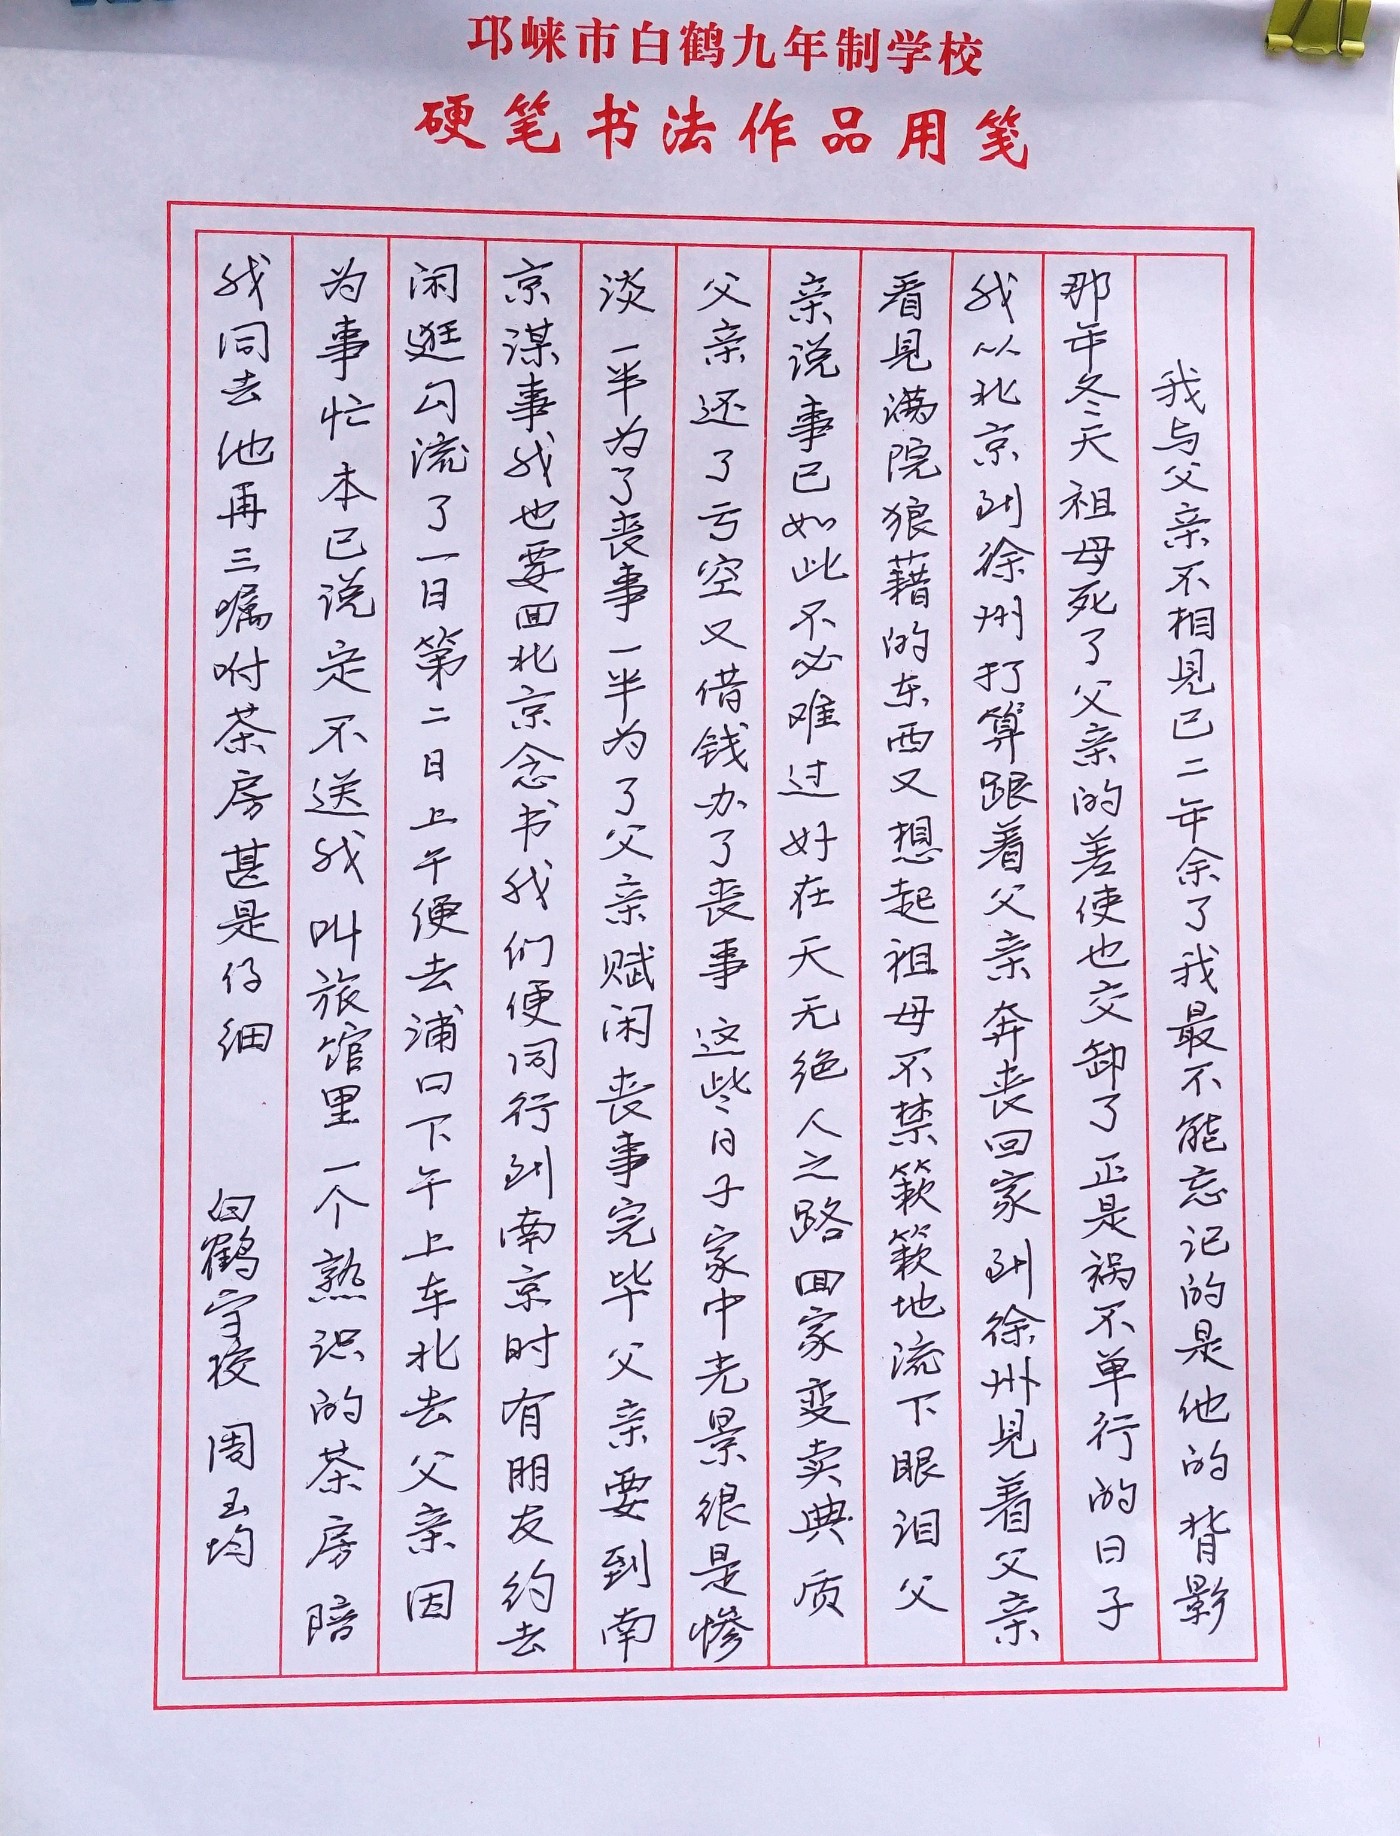 邛崃市白鹤九年制学校
硬笔书法作品用笺
我与父亲不相见已二年余了我最不能忘记的是他的背影
那年冬天祖母死了父亲的差使也交卸了正是祸不单行的日子
我从北京到徐州打算跟着父亲奔丧回家到徐州见着父亲
看见满院狼藉的东西又想起祖母不禁簌簌地流下眼泪父
亲说事已如此不必难过好在天无绝人之路回家变卖典质
父亲还了亏空又借钱办了丧事这些日子家中光景很是惨
淡一半为了丧事一半为了父亲赋闲丧事完毕父亲要到南
京谋事我也要回北京念书我们便同行到南京时有朋友约去
闲逛勾流了一日第二日上午便去浦口下午上车北去父亲因
为事忙本已说定不送我叫旅馆里一个熟识的茶房陪
我同去他再三嘱咐茶房甚是仔细 白鹤学校 周玉均